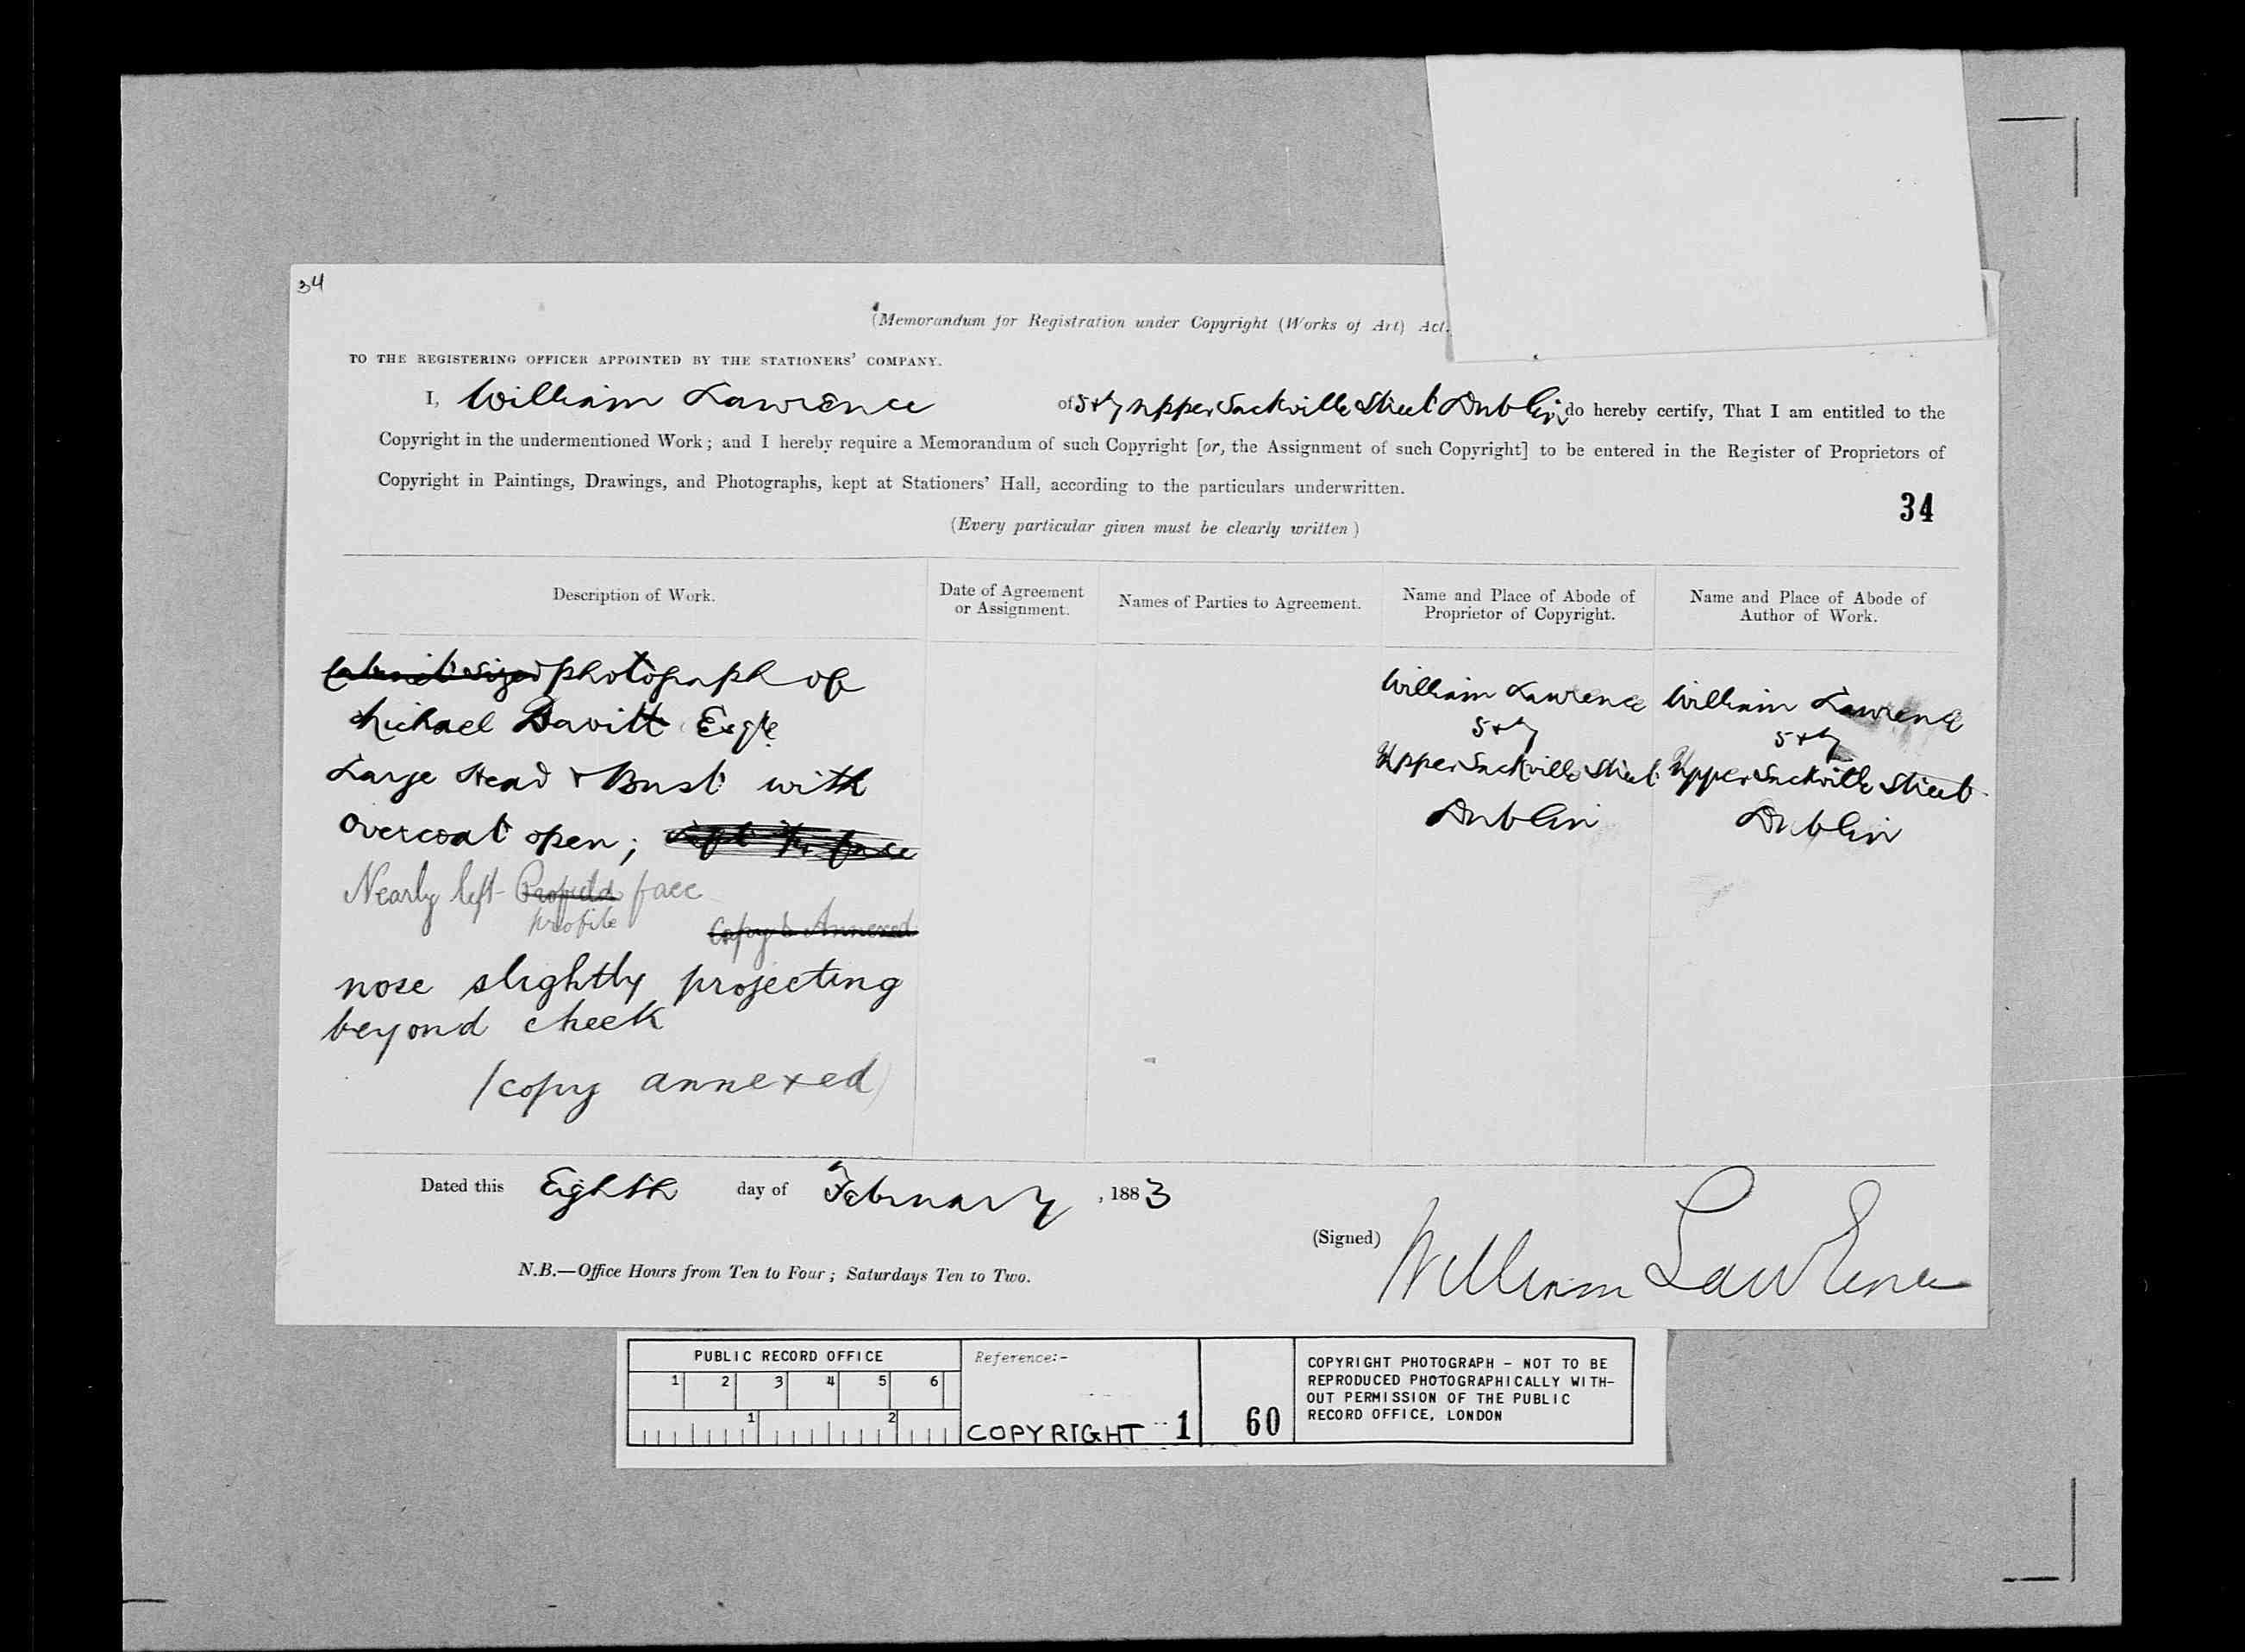 34
(Memorandum for Registration under Copyright (Works of Art) Act.
TO THE REGISTERING OFFICER APPOINTED BY THE STATIONERS' COMPANY.
I, William Lawrence of 5 & 7 upper Sackville Street Dublin do hereby certify, That I am entitled to the
Copyright in the undermentioned Work; and I hereby require a Memorandum of such Copyright [or, the Assignment of such Copyright] to be entered in the Register of Proprietors of
Copyright in Paintings, Drawings, and Photographs, kept at Stationers' Hall, according to the particulars underwritten.
34
(Every particular given must be clearly written)
Description of Work.
Date of Agreement
or Assignment.
Names of Parties to Agreement.
Name and Place of Abode of
Proprietor of Copyright.
Name and Place of Abode of
Author of Work.
Cabinet sized photograph of
Michael Davitt Esqre
Large Head & Bust with
Overcoat open; left 3/4 face
Nearly left face
profile
Copy Annexed
nose slightly projecting
beyond cheek
(copy annexed)
William Lawrence
5 & 7
Upper Sackville Street
Dublin
William Lawrence
5 & 7
Upper Sackville Street
Dublin
Dated this Eighth day of February, 1883
(Signed) William Lawrence
N.B.—Office Hours from Ten to Four; Saturdays Ten to Two.
PUBLIC RECORD OFFICE
1 2 3 4 5 6
1 2
Reference:-
COPYRIGHT 1
60
COPYRIGHT PHOTOGRAPH - NOT TO BE
REPRODUCED PHOTOGRAPHICALLY WITH-
OUT PERMISSION OF THE PUBLIC
RECORD OFFICE, LONDON